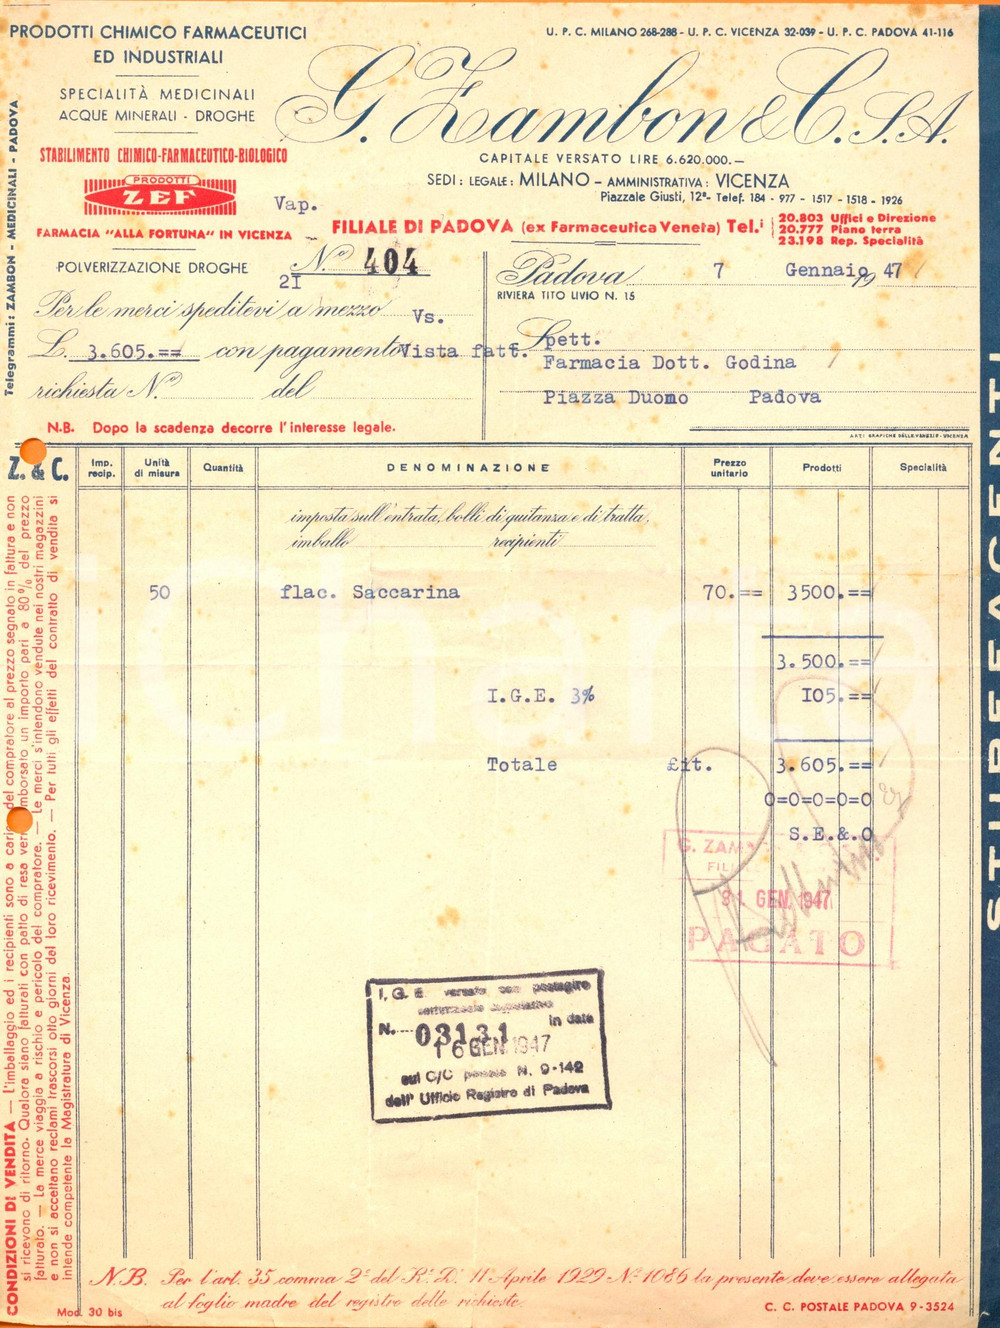 PRODOTTI CHIMICO FARMACEUTICI
ED INDUSTRIALI
SPECIALITÀ MEDICINALI
ACQUE MINERALI - DROGHE
STABILIMENTO CHIMICO-FARMACEUTICO-BIOLOGICO
PRODOTTI
ZEF
FARMACIA "ALLA FORTUNA" IN VICENZA
POLVERIZZAZIONE DROGHE
Telegrammi: ZAMBON - MEDICINALI - PADOVA
U. P. C. MILANO 268-288 - U. P. C. VICENZA 32-039 - U. P. C. PADOVA 41-116
G. Zambon & C. S.A.
CAPITALE VERSATO LIRE 6.620.000.—
SEDI: LEGALE: MILANO – AMMINISTRATIVA: VICENZA
Piazzale Giusti, 12ª- Telef. 184 - 977 - 1517 - 1518 - 1926
Vap.
FILIALE DI PADOVA (ex Farmaceutica Veneta) Tel.i
20.803 Uffici e Direzione
20.777 Piano terra
23.198 Rep. Specialità
N.º 404
2I
Padova 7 Gennaio 1947
RIVIERA TITO LIVIO N. 15
Per le merci speditevi a mezzo Vs.
L. 3.605.== con pagamento Vista fatt.
richiesta N.º del
Spett.
Farmacia Dott. Godina
Piazza Duomo Padova
N.B. Dopo la scadenza decorre l'interesse legale.
ARTI GRAFICHE DELLE VENEZIE - VICENZA
Z. & C.
Imp. recip. Unità di misura Quantità DENOMINAZIONE Prezzo unitario Prodotti Specialità
imposta sull'entrata, bolli di quitanza e di tratta,
imballo recipienti
50 flac. Saccarina 70.== 3500.==
3.500.==
I.G.E. 3% I05.==
Totale £it. 3.605.==
0=0=0=0=0
S.E.&.O
G. ZAM
FIL
31 GEN. 1947
PAGATO
I. G. E. versata con postagiro
N. 03131 in data
16 GEN 1947
sul C/C postale N. 9-142
dell' Ufficio Registro di Padova
CONDIZIONI DI VENDITA — L'imballaggio ed i recipienti sono a carico del compratore al prezzo segnato in fattura e non
si ricevono di ritorno. Qualora siano fatturati con patto di resa verrà rimborsato un importo pari a 80% del prezzo
fatturato. — La merce viaggia a rischio e pericolo del compratore. — Le merci s'intendono vendute nei nostri magazzini
e non si accettano reclami trascorsi otto giorni dal loro ricevimento. — Per tutti gli effetti del contratto di vendita si
intende competente la Magistratura di Vicenza.
N.B. Per l'art. 35, comma 2º del R.º D.º 11 Aprile 1929 Nº 1086 la presente deve essere allegata
al foglio madre del registro delle richieste.
Mod. 30 bis
C. C. POSTALE PADOVA 9-3524
STUPEFACENTI
iCharta